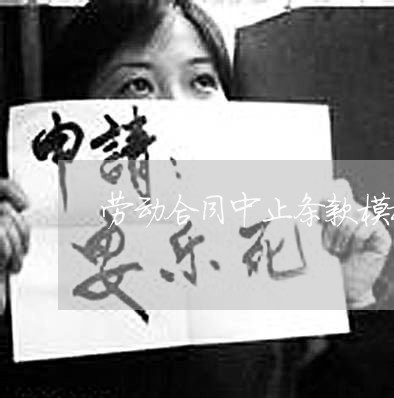 申請：
劳动合同中止条款模
安乐死